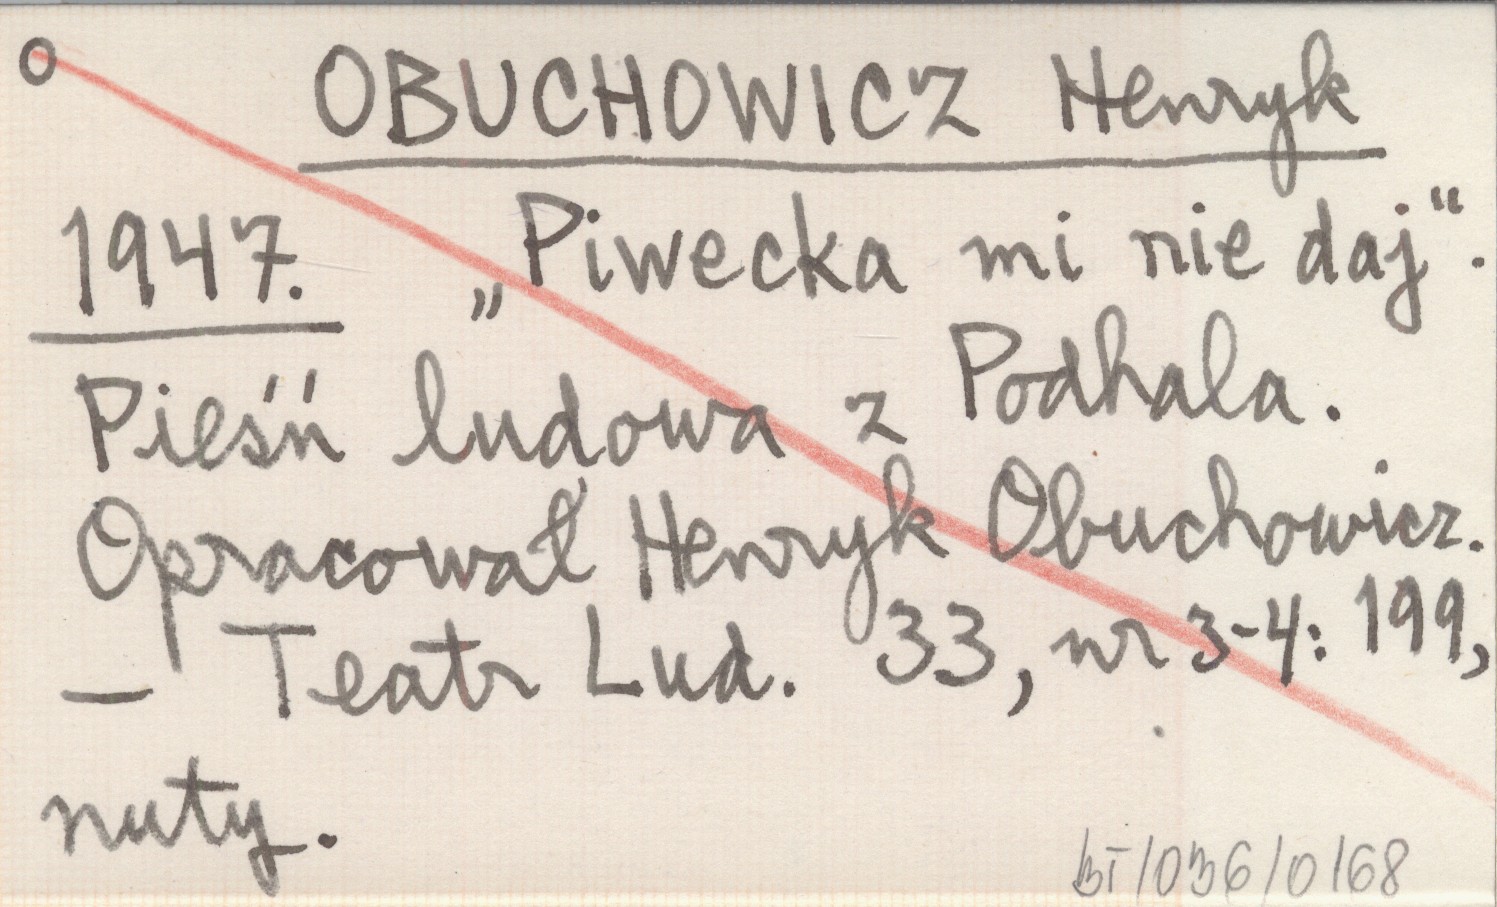 O OBUCHOWICZ Henryk
1947. „Piwecka mi nie daj“.
Pieśń ludowa z Podhala.
Opracował Henryk Obuchowicz.
— Teatr Lud. 33, nr 3-4: 199,
nuty.
BT/036/0168